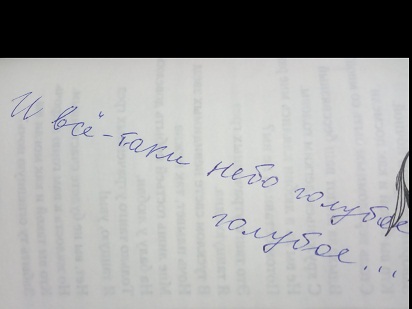 И всё-таки небо голубое
голубое...